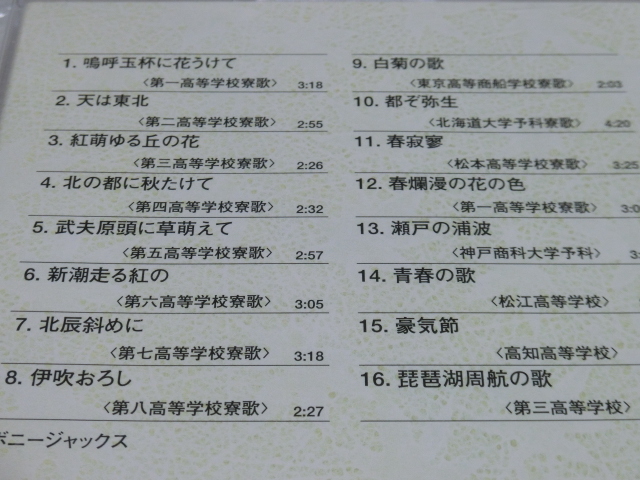 1. 嗚呼玉杯に花うけて
〈第一高等学校寮歌〉 3:18
2. 天は東北
〈第二高等学校寮歌〉 2:55
3. 紅萌ゆる丘の花
〈第三高等学校寮歌〉 2:26
4. 北の都に秋たけて
〈第四高等学校寮歌〉 2:32
5. 武夫原頭に草萌えて
〈第五高等学校寮歌〉 2:57
6. 新潮走る紅の
〈第六高等学校寮歌〉 3:05
7. 北辰斜めに
〈第七高等学校寮歌〉 3:18
8. 伊吹おろし
〈第八高等学校寮歌〉 2:27
ボニージャックス
9. 白菊の歌
〈東京高等商船学校寮歌〉 2:03
10. 都ぞ弥生
〈北海道大学予科寮歌〉 4:20
11. 春寂寥
〈松本高等学校寮歌〉 3:25
12. 春爛漫の花の色
〈第一高等学校寮歌〉 3:0
13. 瀬戸の浦波
〈神戸商科大学予科〉 3:
14. 青春の歌
〈松江高等学校〉
15. 豪気節
〈高知高等学校〉
16. 琵琶湖周航の歌
〈第三高等学校〉